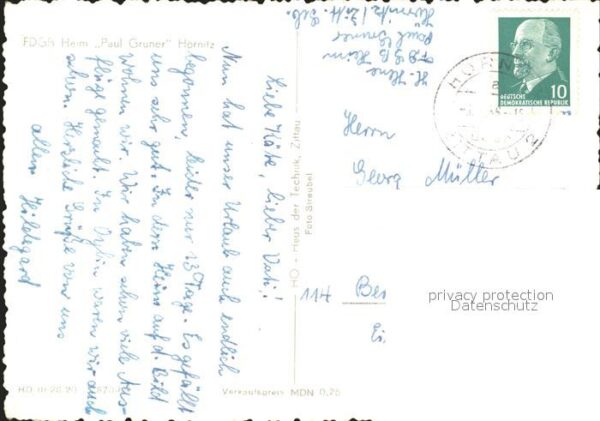 FDGB Heim „Paul Gruner" Hörnitz
Liebe Käte, lieber Vati!
Nun hat unser Urlaub auch endlich
begonnen, leider nur 13 Tage. Es gefällt
uns sehr gut. In dem Heim auf d. Bild
wohnen wir. Wir haben schon viele Aus-
flüge gemacht. In Oybin waren wir auch
schon. Herzliche Grüße von uns
allen Hildegard
HO - Haus der Technik, Zittau
Foto-Straubel
Verkaufspreis MDN 0,25
H.
FDGB Heim
Paul Gruner
Hörnitz / Zitt. Geb.
10
DEUTSCHE
DEMOKRATISCHE REPUBLIK
HÖRNITZ
ZITTAU 2
Herrn
Georg Müller
114 Ber
privacy protection
Datenschutz